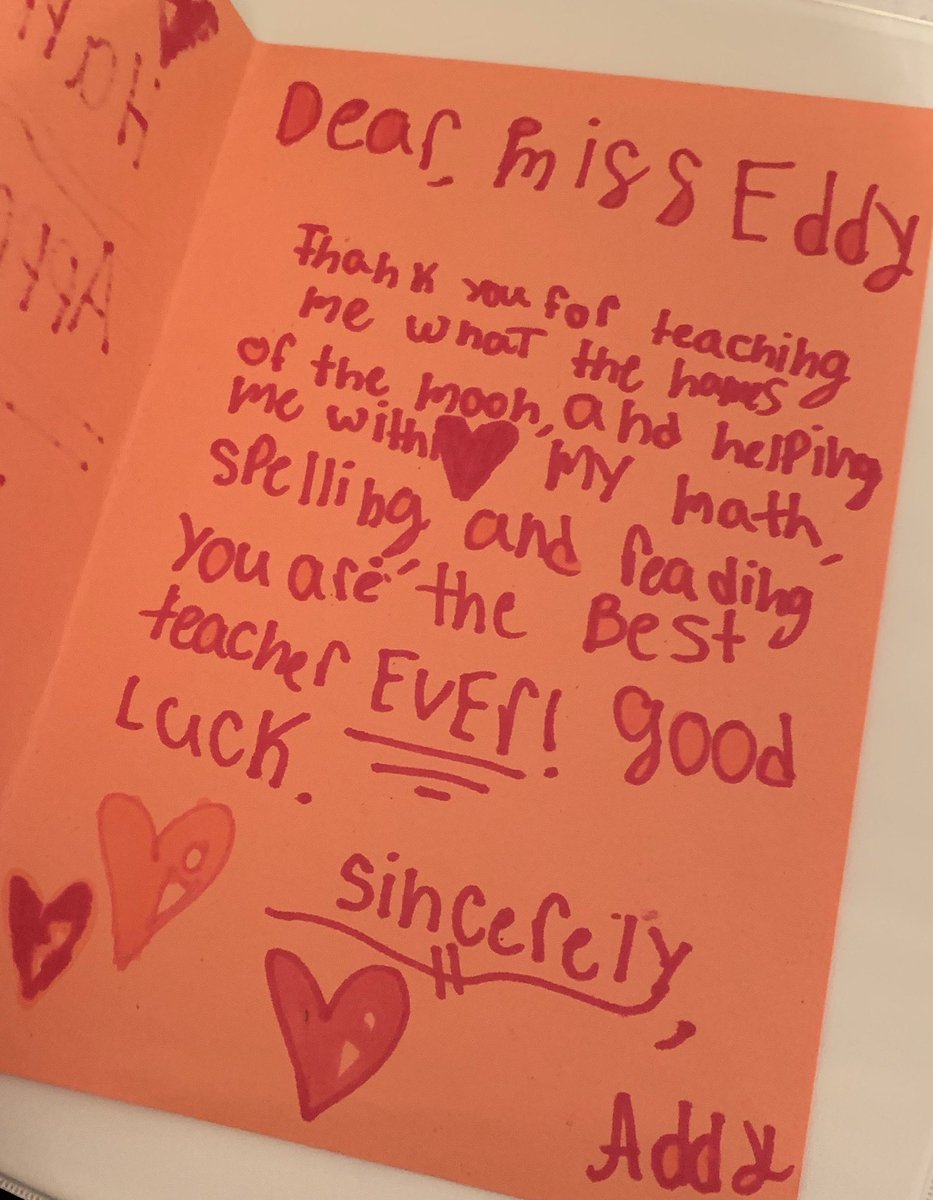 Dear, miss Eddy
Thank you for teaching
me what the names
of the moon, and helping
me with my math,
spelling, and reading
you are the Best
teacher EVEr! good
Luck.
sincerely,
Addy